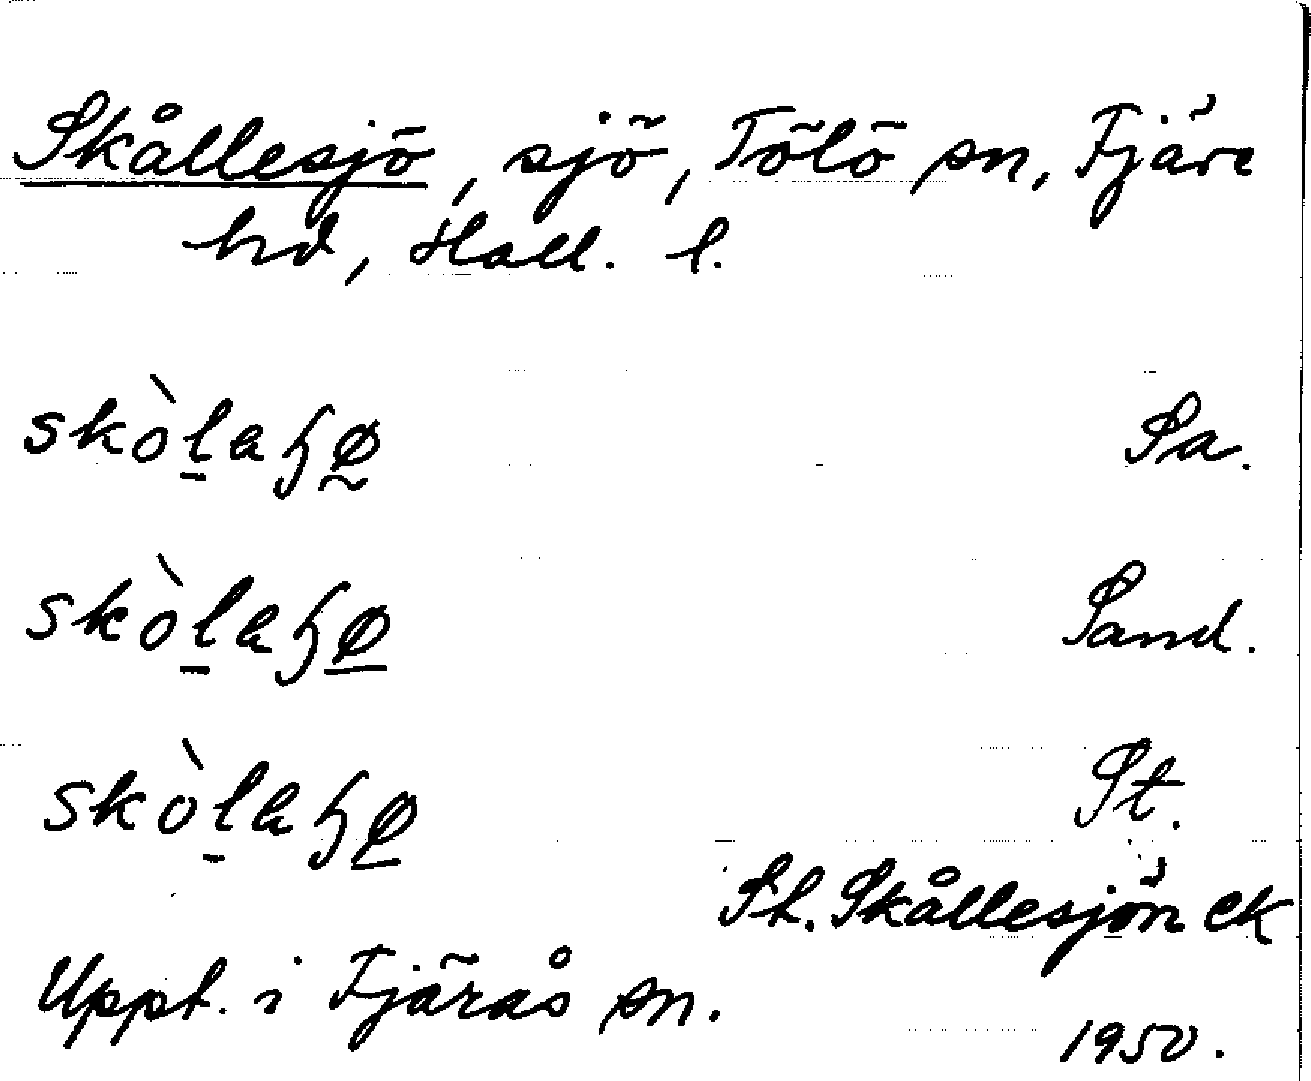 Skållesjö, sjö, Tölö sn, Fjäre
hd, Hall. l.
skòl̠aɧø̰ Sa.
skòl̠aɧø̠ Sand.
skòl̠aɧø̠ St.
St. Skållesjön ek
Uppt. i Fjärås sn.
1950.